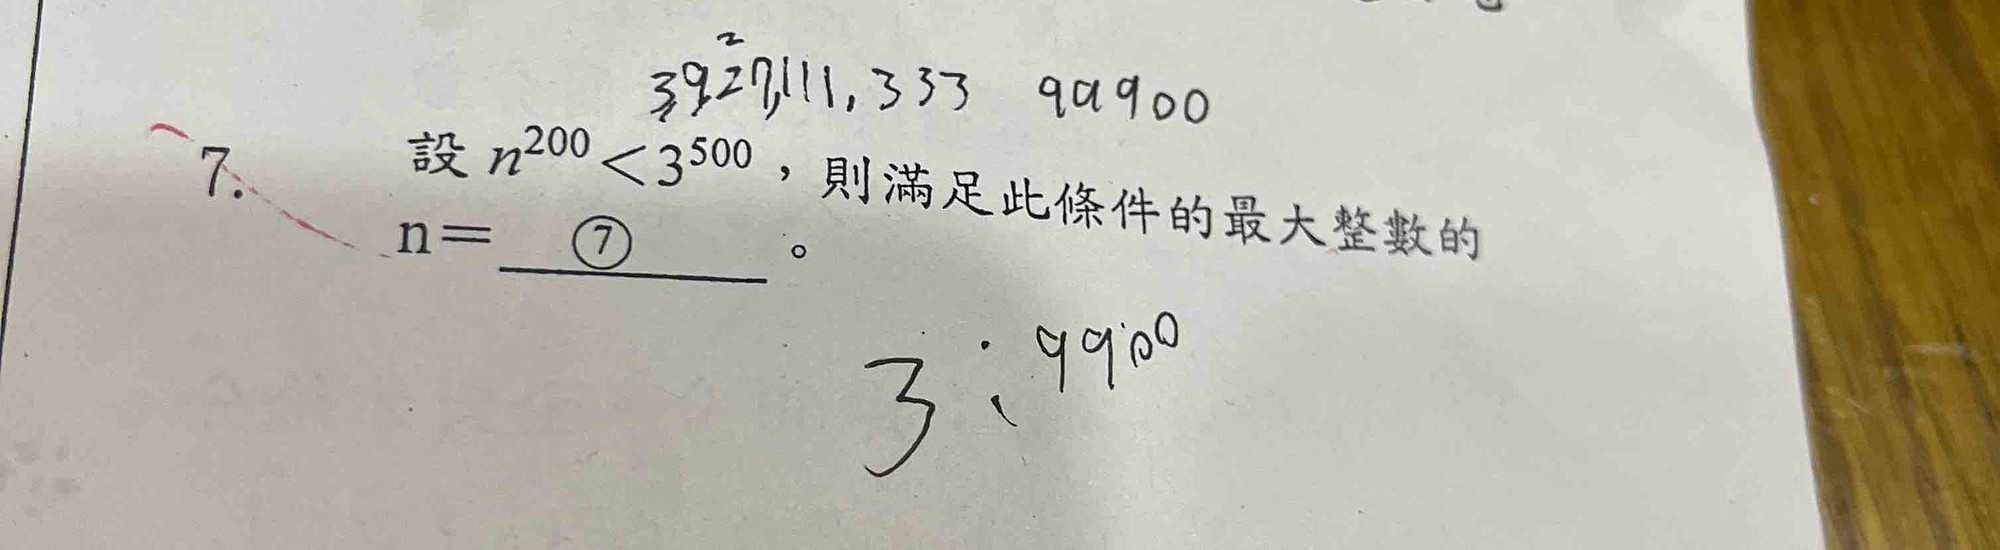 3,9,27,111,333 99900
2
7. 設 n²⁰⁰ < 3⁵⁰⁰，則滿足此條件的最大整數的
n= ⑦ 。
3 : 9900